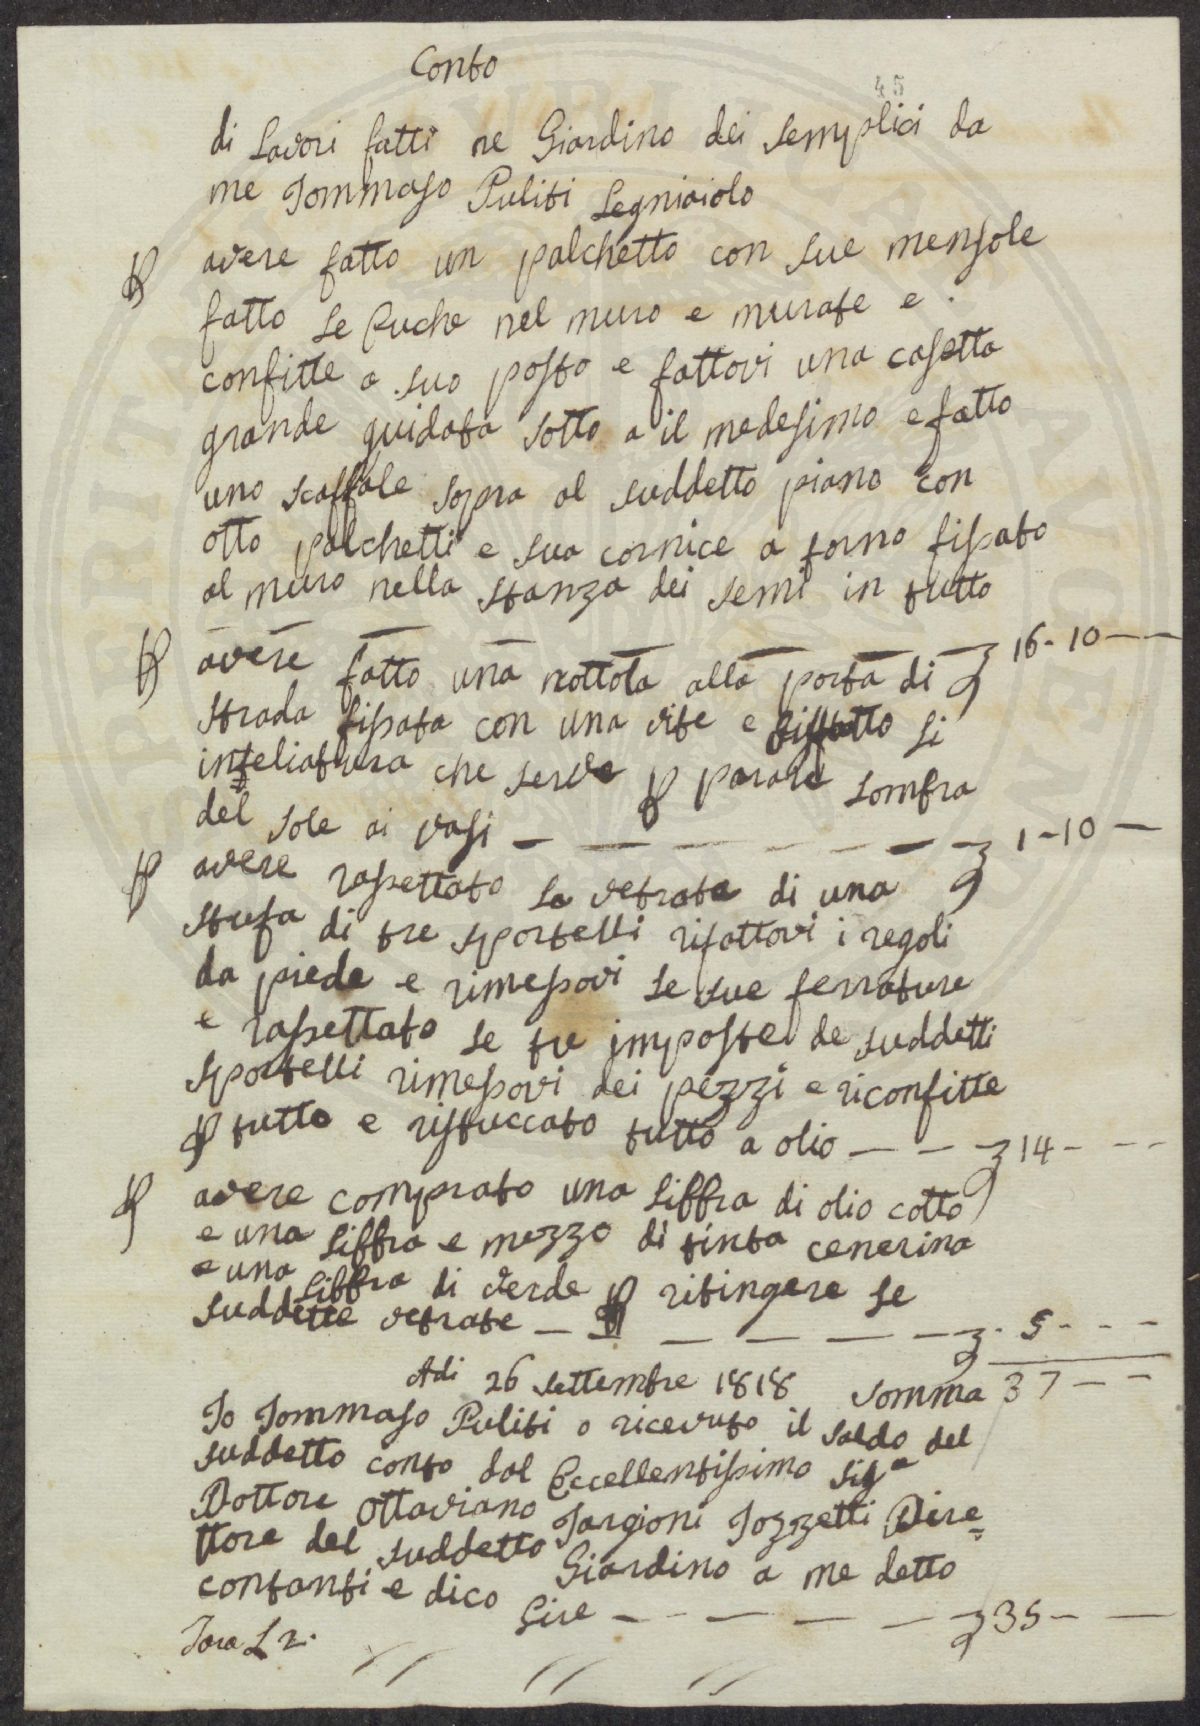 Conto
45
di Lavori fatti ne Giardino dei Semplici da
me Tommaso Puliti Legniaiolo
P avere fatto un palchetto con sue mensole
fatto le buche nel muro e murate e
confitte a suo posto e fattovi una casetta
grande guidata sotto a il medesimo e fatto
uno scaffale sopra al suddetto piano con
otto palchetti e sua cornice a torno fissato
al muro nella stanza dei semi in tutto
16-10--
P avere fatto una nottola alla porta di
strada fissata con una vite e li
inteliatura che serve P parare lombra
del sole ai vasi - - - - - - - 1-10-
P avere rassettato la vetrata di una
stufa di tre sportelli rifattovi i regoli
da piede e rimessovi le sue ferrature
e rassettato le tre imposte de suddetti
sportelli rimessovi dei pezzi e riconfitte
P tutto e ristuccato tutto a olio - - - 14- - -
P avere comprato una libbra di olio cotto
e una libbra e mezzo di tinta cenerina
e una libbra di verde P ritingere le
suddette vetrate - - - - - - 5- - -
Adi 26 Settembre 1818 Somma 37 - -
Io Tommaso Puliti o ricevuto il saldo del
suddetto conto dal Eccellentissimo Sigre
Dottore Ottaviano Targioni Tozzetti Dire=
ttore del suddetto Giardino a me detto
contanti e dico Lire - - - - - - 35- -
Tara L 2.